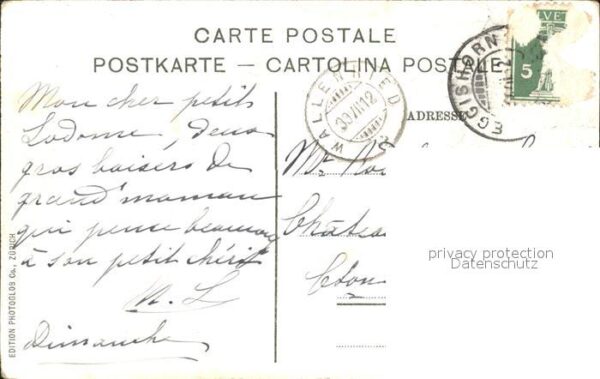 CARTE POSTALE
POSTKARTE — CARTOLINA POSTALE
VE
5
EGGISHORN
WALLENRIED
30 VII 12
ADRESSE
Mon cher petit
deux
gros baisers de
grand'maman
qui pense beaucoup
à son petit chéri
M. L
Dimanche
Mr
Château
privacy protection
Datenschutz
EDITION PHOTOGLOB Co., ZÜRICH